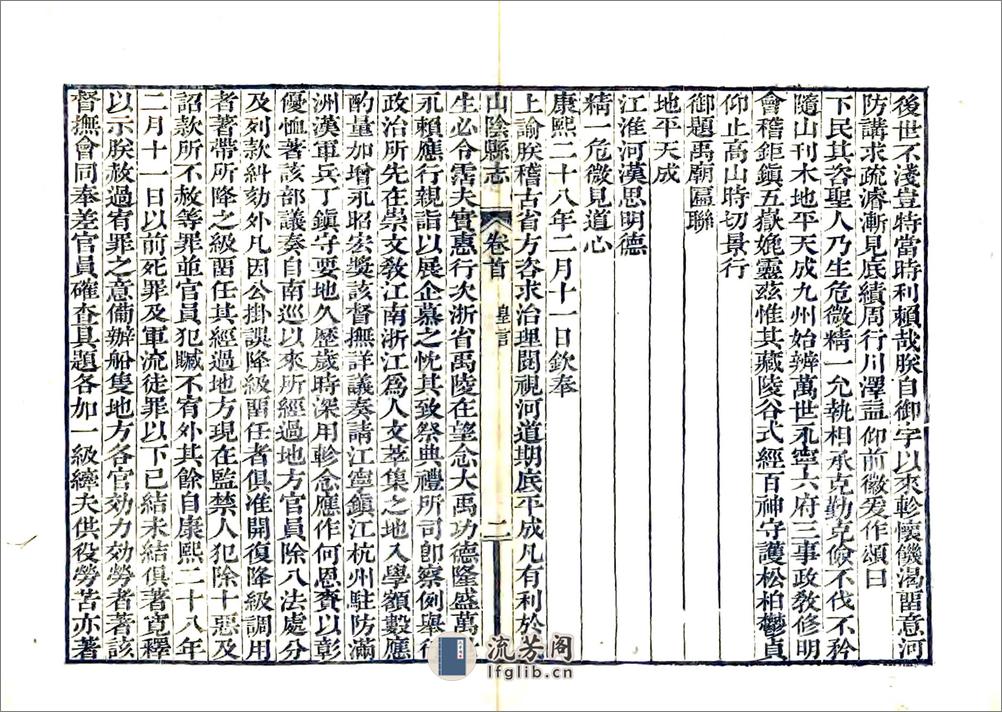 後世不淺豈特當時利賴哉朕自御宇以來軫懷饑渴畱意河
防講求疏濬漸見底績周行川澤益仰前徽爰作頌曰
下民其咨聖人乃生危微精一允執相承克勤克儉不伐不矜
隨山刊木地平天成九州始辨萬世永寧六府三事政敎修明
會稽鉅鎭五嶽媲靈兹惟其藏陵谷式經百神守護松柏鬱貞
仰止高山時切景行
御題禹廟匾聯
地平天成
江淮河漢思明德
精一危微見道心
康熙二十八年二月十一日欽奉
上諭朕稽古省方咨求治理閱視河道期底平成凡有利於
山陰縣志
卷首
皇言
二
生必令霑夫實惠行次浙省禹陵在望念大禹功德隆盛萬
永賴應行親詣以展企慕之忱其致祭典禮所司卽察例舉行
政治所先在崇文敎江南浙江爲人文萃集之地入學額數應
酌量加增永昭宏奬該督撫詳議奏請江寧鎭江杭州駐防滿
洲漢軍兵丁鎭守要地久歷歲時深用軫念應作何恩賚以彰
優恤著該部議奏自南巡以來所經過地方官員除八法處分
及列款糾劾外凡因公掛誤降級畱任者俱准開復降級調用
者著帶所降之級畱任其經過地方現在監禁人犯除十惡及
詔款所不赦等罪並官員犯贓不宥外其餘自康熙二十八年
二月十一日以前死罪及軍流徒罪以下已結未結俱著寬釋
以示朕赦過宥罪之意備辦船隻地方各官効力効勞者著該
督撫會同奉差官員確查具題各加一級縴夫供役勞苦亦著
流芳阁
lfglib.cn